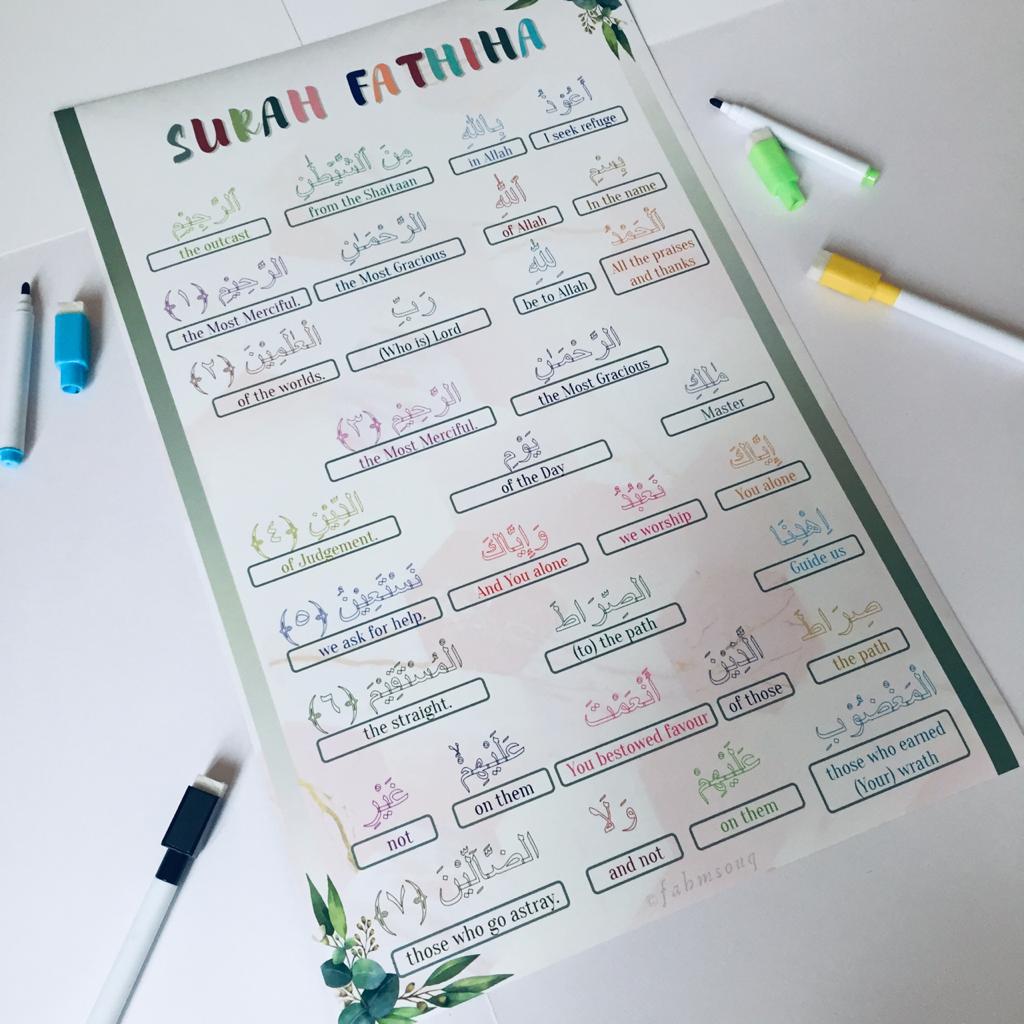 SURAH FATHIHA
أَعُوْذُ بِاللّٰهِ مِنَ الشَّيْطٰنِ الرَّجِيْمِ
I seek refuge in Allah from the Shaitaan the outcast
بِسْمِ اللّٰهِ الرَّحْمٰنِ الرَّحِيْمِ ﴿١﴾
In the name of Allah the Most Gracious the Most Merciful.
اَلْحَمْدُ لِلّٰهِ رَبِّ الْعٰلَمِيْنَ ﴿٢﴾
All the praises and thanks be to Allah (Who is) Lord of the worlds.
الرَّحْمٰنِ الرَّحِيْمِ ﴿٣﴾
the Most Gracious the Most Merciful.
مٰلِكِ يَوْمِ الدِّيْنِ ﴿٤﴾
Master of the Day of Judgement.
إِيَّاكَ نَعْبُدُ وَإِيَّاكَ نَسْتَعِيْنُ ﴿٥﴾
You alone we worship And You alone we ask for help.
اِهْدِنَا الصِّرَاطَ الْمُسْتَقِيْمَ ﴿٦﴾
Guide us (to) the path the straight.
صِرَاطَ الَّذِيْنَ أَنْعَمْتَ عَلَيْهِمْ ۙ غَيْرِ
the path of those You bestowed favour on them not
الْمَغْضُوْبِ عَلَيْهِمْ وَلَا الضَّآلِّيْنَ ﴿٧﴾
those who earned (Your) wrath on them and not those who go astray.
©fabmsouq